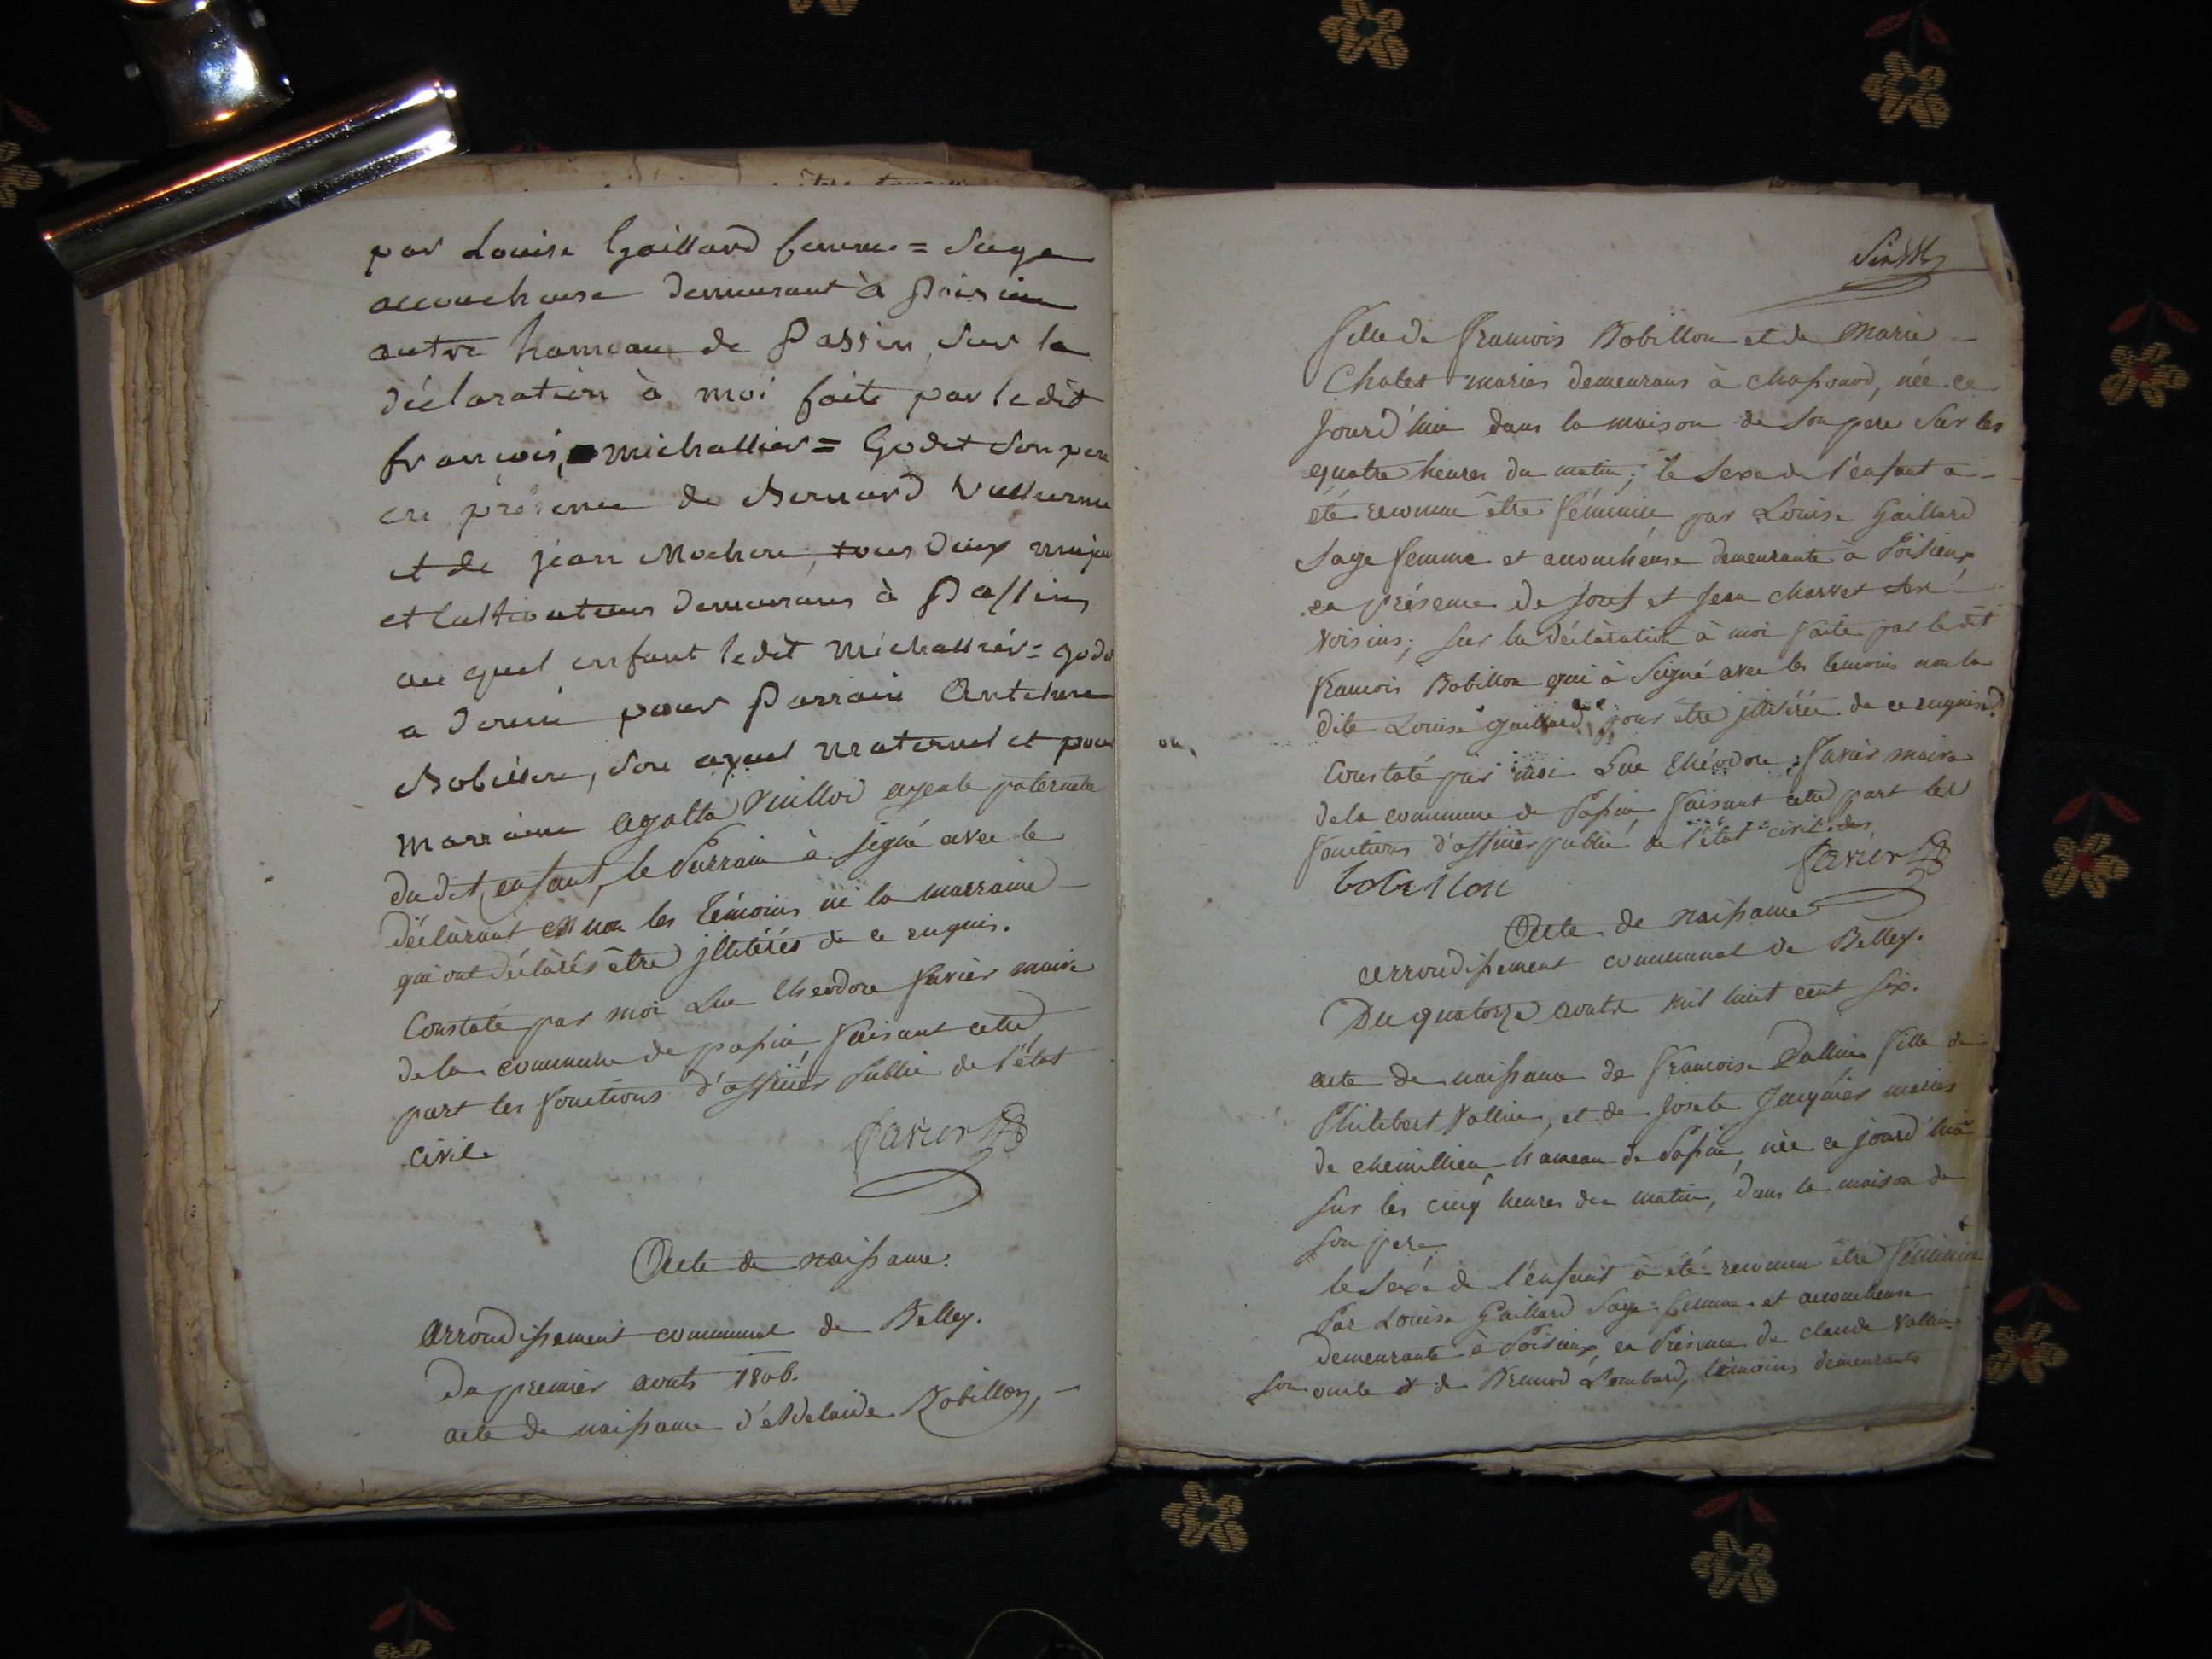 par Louise Gaillard femme = Sage
accoucheuse demeurant à Poisieu
autre hameau de Passin, sur la
déclaration à moi faite par le dit
françois, michallier = Godet son pere
en présence de Bernard
et de jean Mochon, tous deux majeu
et Cultivateurs demeurans à Passin,
au quel enfant le dit Michallier = god
a donné pour Parrain Antelme
Bobillon, son ayeul maternel et pour
Marraine agatta Vuillod ayeule paternelle
du dit enfant, le Parrain à signé avec le
déclarant et non les témoins ni la marraine
qui ont déclarés être jllitérés de ce requis.
Constaté par moi Luc Theodore Savier maire
de la commune de passin faisant cette
part les fonctions d'officier public de l'état
civil.
Savier
Acte de naissance.
Arrondissement communal de Belley.
du premier aouts 1806.
acte de naissance d'Adelaide Bobillon,
fille de françois Bobillon et de Marie
Chalet mariés demeurans à chassonod, née ce
jourd'hui dans la maison de son pere sur les
quatre heures du matin; le sexe de l'enfant a
été reconnu être féminin par Louise Gaillard
sage femme et accoucheuse demeurante à Poisieux
en présence de josef et jean charvet
voisins; sur la déclaration à moi faite par le dit
françois Bobillon qui à signé avec les temoins non la
dite Louise gaillard, pour être jllitérée de ce requise.
Constaté par moi Luc Théodore Savier maire
de la commune de Passin faisant cette part les
fonctions d'officier public de l'état civil.
bobillon Savier
Acte de naissance
arrondissement communal de Belley.
Du quatorze aoutst mil huit cent six.
acte de naissance de françoise Vallin fille de
Philibert Vallin, et de josete Jacquier mariés
de chemillieu hameau de Passin, née ce jourd'hui
sur les cinq heures du matin, dans la maison de
son pere
le sexe de l'enfant à été reconnu être féminin
Par Louise Gaillard Sage femme et accoucheuse
demeurante à Poisieux, en Présence de claude Vallin
son oncle et de Bernard Lombard, témoins demeurants